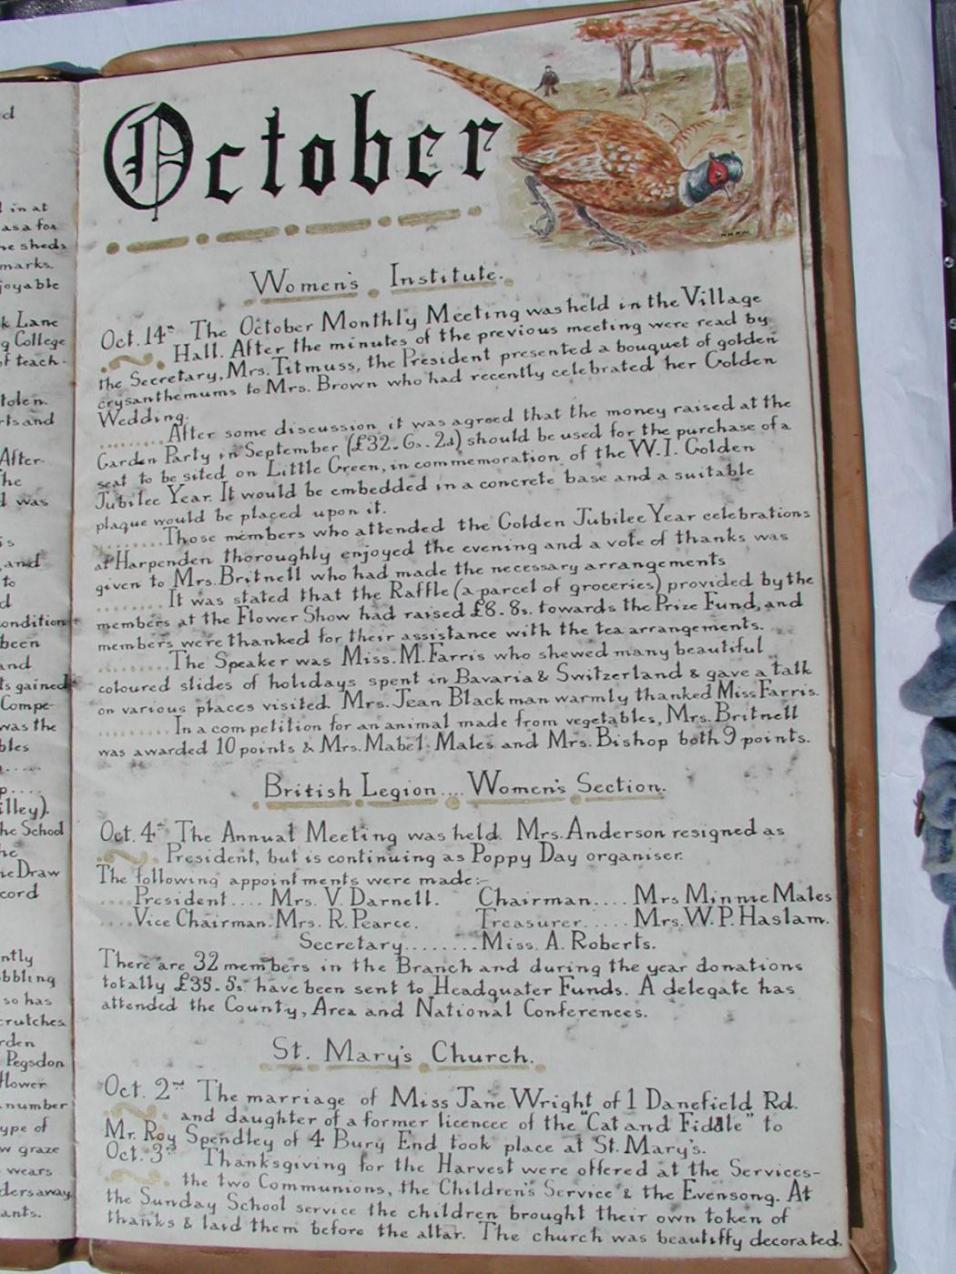 October
Women's Institute.
Oct. 14th The October Monthly Meeting was held in the Village
Hall. After the minutes of the previous meeting were read by
the Secretary, Mrs. Titmuss, the President presented a bouquet of golden
crysanthemums to Mrs. Brown who had recently celebrated her Golden
Wedding.
........After some discussion it was agreed that the money raised at the
Garden Party in September (£32. 6s. 2d) should be used for the purchase of a
seat to be sited on Little Green, in commemoration of the W.I. Golden
Jubilee Year. It would be embedded in a concrete base and a suitable
plaque would be placed upon it.
........Those members who attended the Golden Jubilee Year celebrations
at Harpenden thoroughly enjoyed the evening and a vote of thanks was
given to Mrs. Britnell who had made the necessary arrangements
........It was stated that the Raffle (a parcel of groceries) provided by the
members at the Flower Show had raised £8. 8s. towards the Prize Fund, and
members were thanked for their assistance with the tea arrangements.
........The Speaker was Miss. M. Farris who shewed many beautiful
coloured slides of holidays spent in Bavaria & Switzerland & gave a talk
on various places visited. Mrs. Jean Blackman warmly thanked Miss Farris.
........In a competition for an animal made from vegetables, Mrs. Britnell
was awarded 10 points & Mrs. Mabel Males and Mrs. Bishop both 9 points.
British Legion.... Women's Section.
Oct. 4th The Annual Meeting was held. Mrs. Anderson resigned as
President, but is continuing as Poppy Day organiser.
The following appointments were made:-
....President.... Mrs. V. Darnell. Chairman.... Mrs Minnie Males
....Vice Chairman. Mrs. R. Pearce. Treasurer..... Mrs. W. P. Haslam.
Secretary........Miss. A. Roberts.
There are 32 members in the Branch and during the year donations
totally £35. 5s. have been sent to Headquater Funds. A delegate has
attended the County, Area and National Conferences.
St. Mary's Church.
Oct. 2nd The marriage of Miss Jane Wright of 1 Danefield Rd.
and daughter of a former licencee of the "Cat and Fiddle" to
Mr. Roy Spendley of 4 Bury End took place at St. Mary's.
Oct. 3rd Thanksgiving for the Harvest were offered at the Services-
the two Communions, the Children's Service & the Evensong. At
the Sunday School service the children brought their own token of
thanks & laid them before the altar. The church was beautiffy decorated.